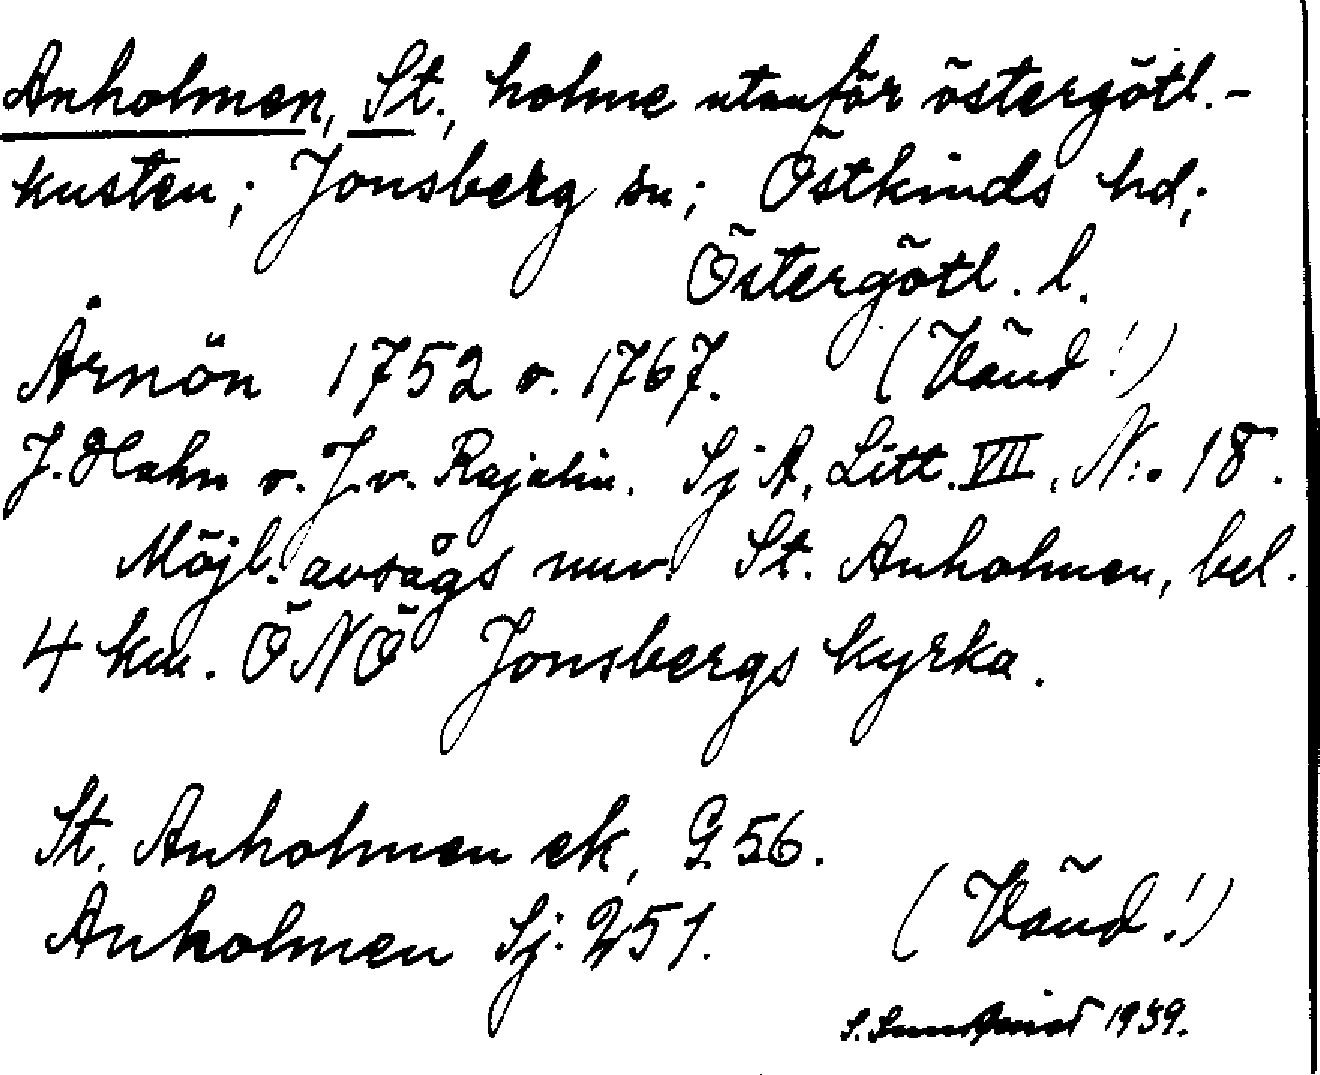 Anholmen, St., holme utanför östergötl.-
kusten; Jonsberg sn; Östkinds hd;
Östergötl. l.
Årnön 1752 o. 1767. (Vänd!)
J. Hahn o. J. v. Rajalin. Sj A, Litt. VII, N:o 18.
Möjl. avsågs nuv. St. Anholmen, bel.
4 km. ÖNÖ Jonsbergs kyrka.
St. Anholmen ek, G 56.
Anholmen Sj. 251. (Vänd!)
S. 1939.